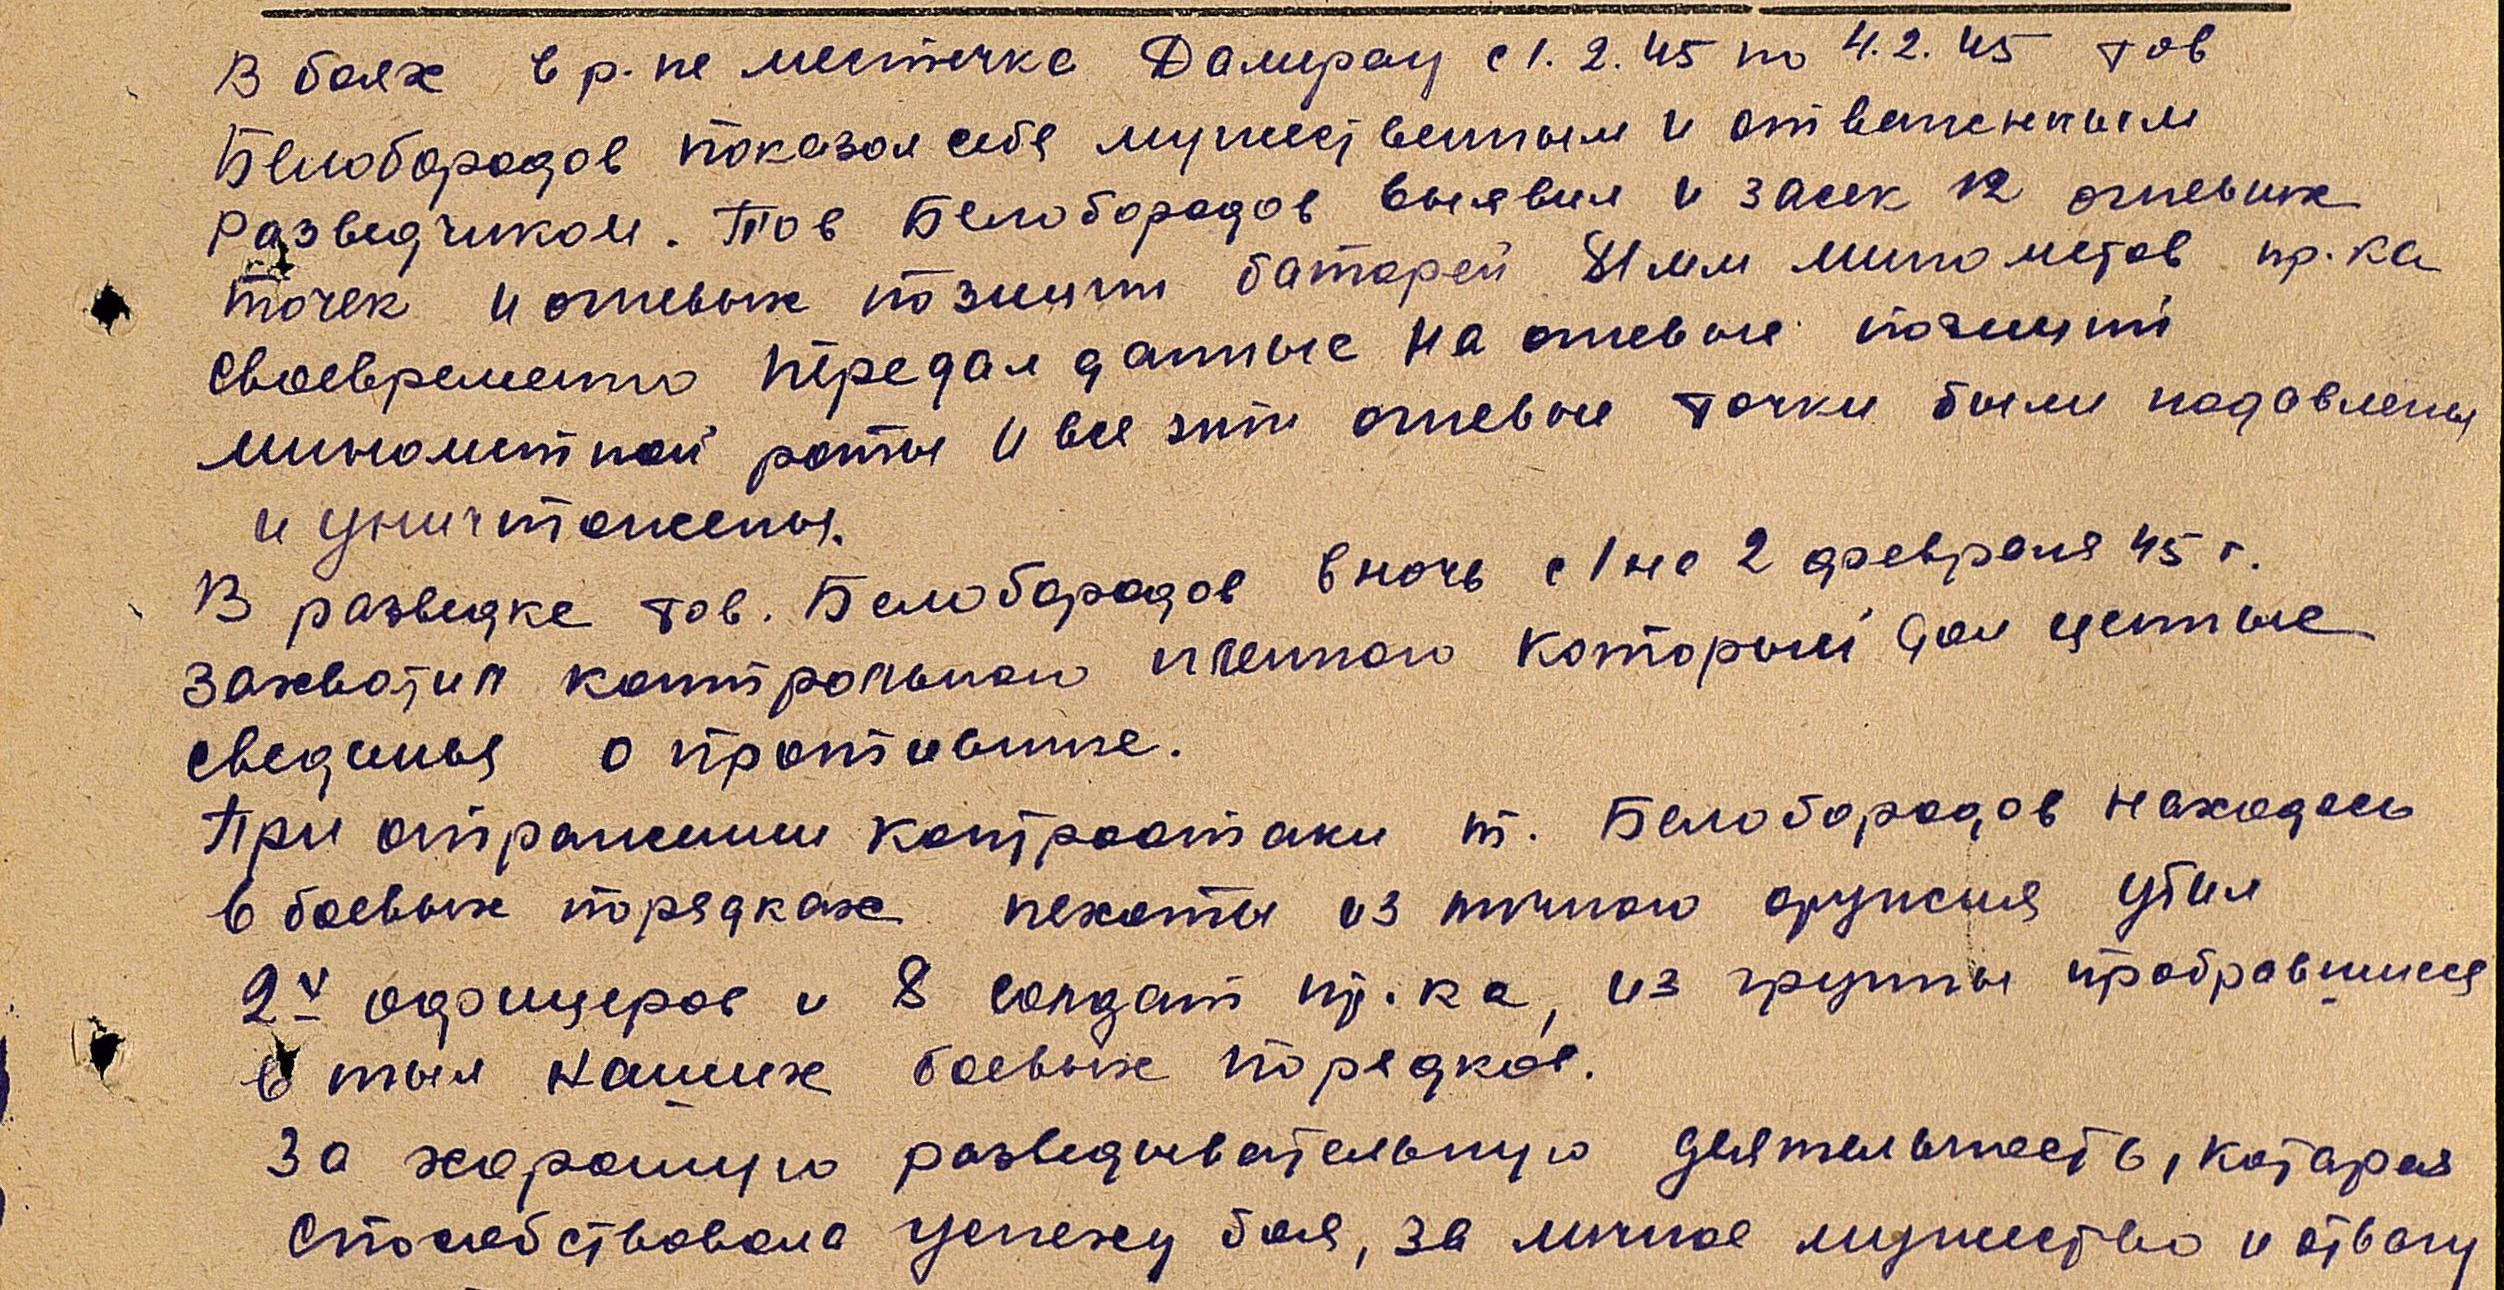 В боях в р-не местечка Дамерау с 1.2.45 по 4.2.45 тов
Белобородов показал себя мужественным и отважным
разведчиком. Тов Белобородов выявил и засек 12 огневых
точек и огневых позиции батарей 81 мм минометов пр-ка
своевременно передал данные на огневые позиции
минометной роты и все эти огневые точки были подавлены
и уничтожены.
В разведке тов. Белобородов в ночь с 1 на 2 февраля 45 г.
захватил контрольного пленного который дал ценные
сведенья о противнике.
При отражении контратаки т. Белобородов находясь
в боевых порядках пехоты из личного оружия убил
2х офицеров и 8 солдат пр-ка, из группы пробравшихся
в тыл наших боевых порядков.
За хорошую разведывательную деятельность, которая
способствовала успеху боя, за личное мужество и отвагу